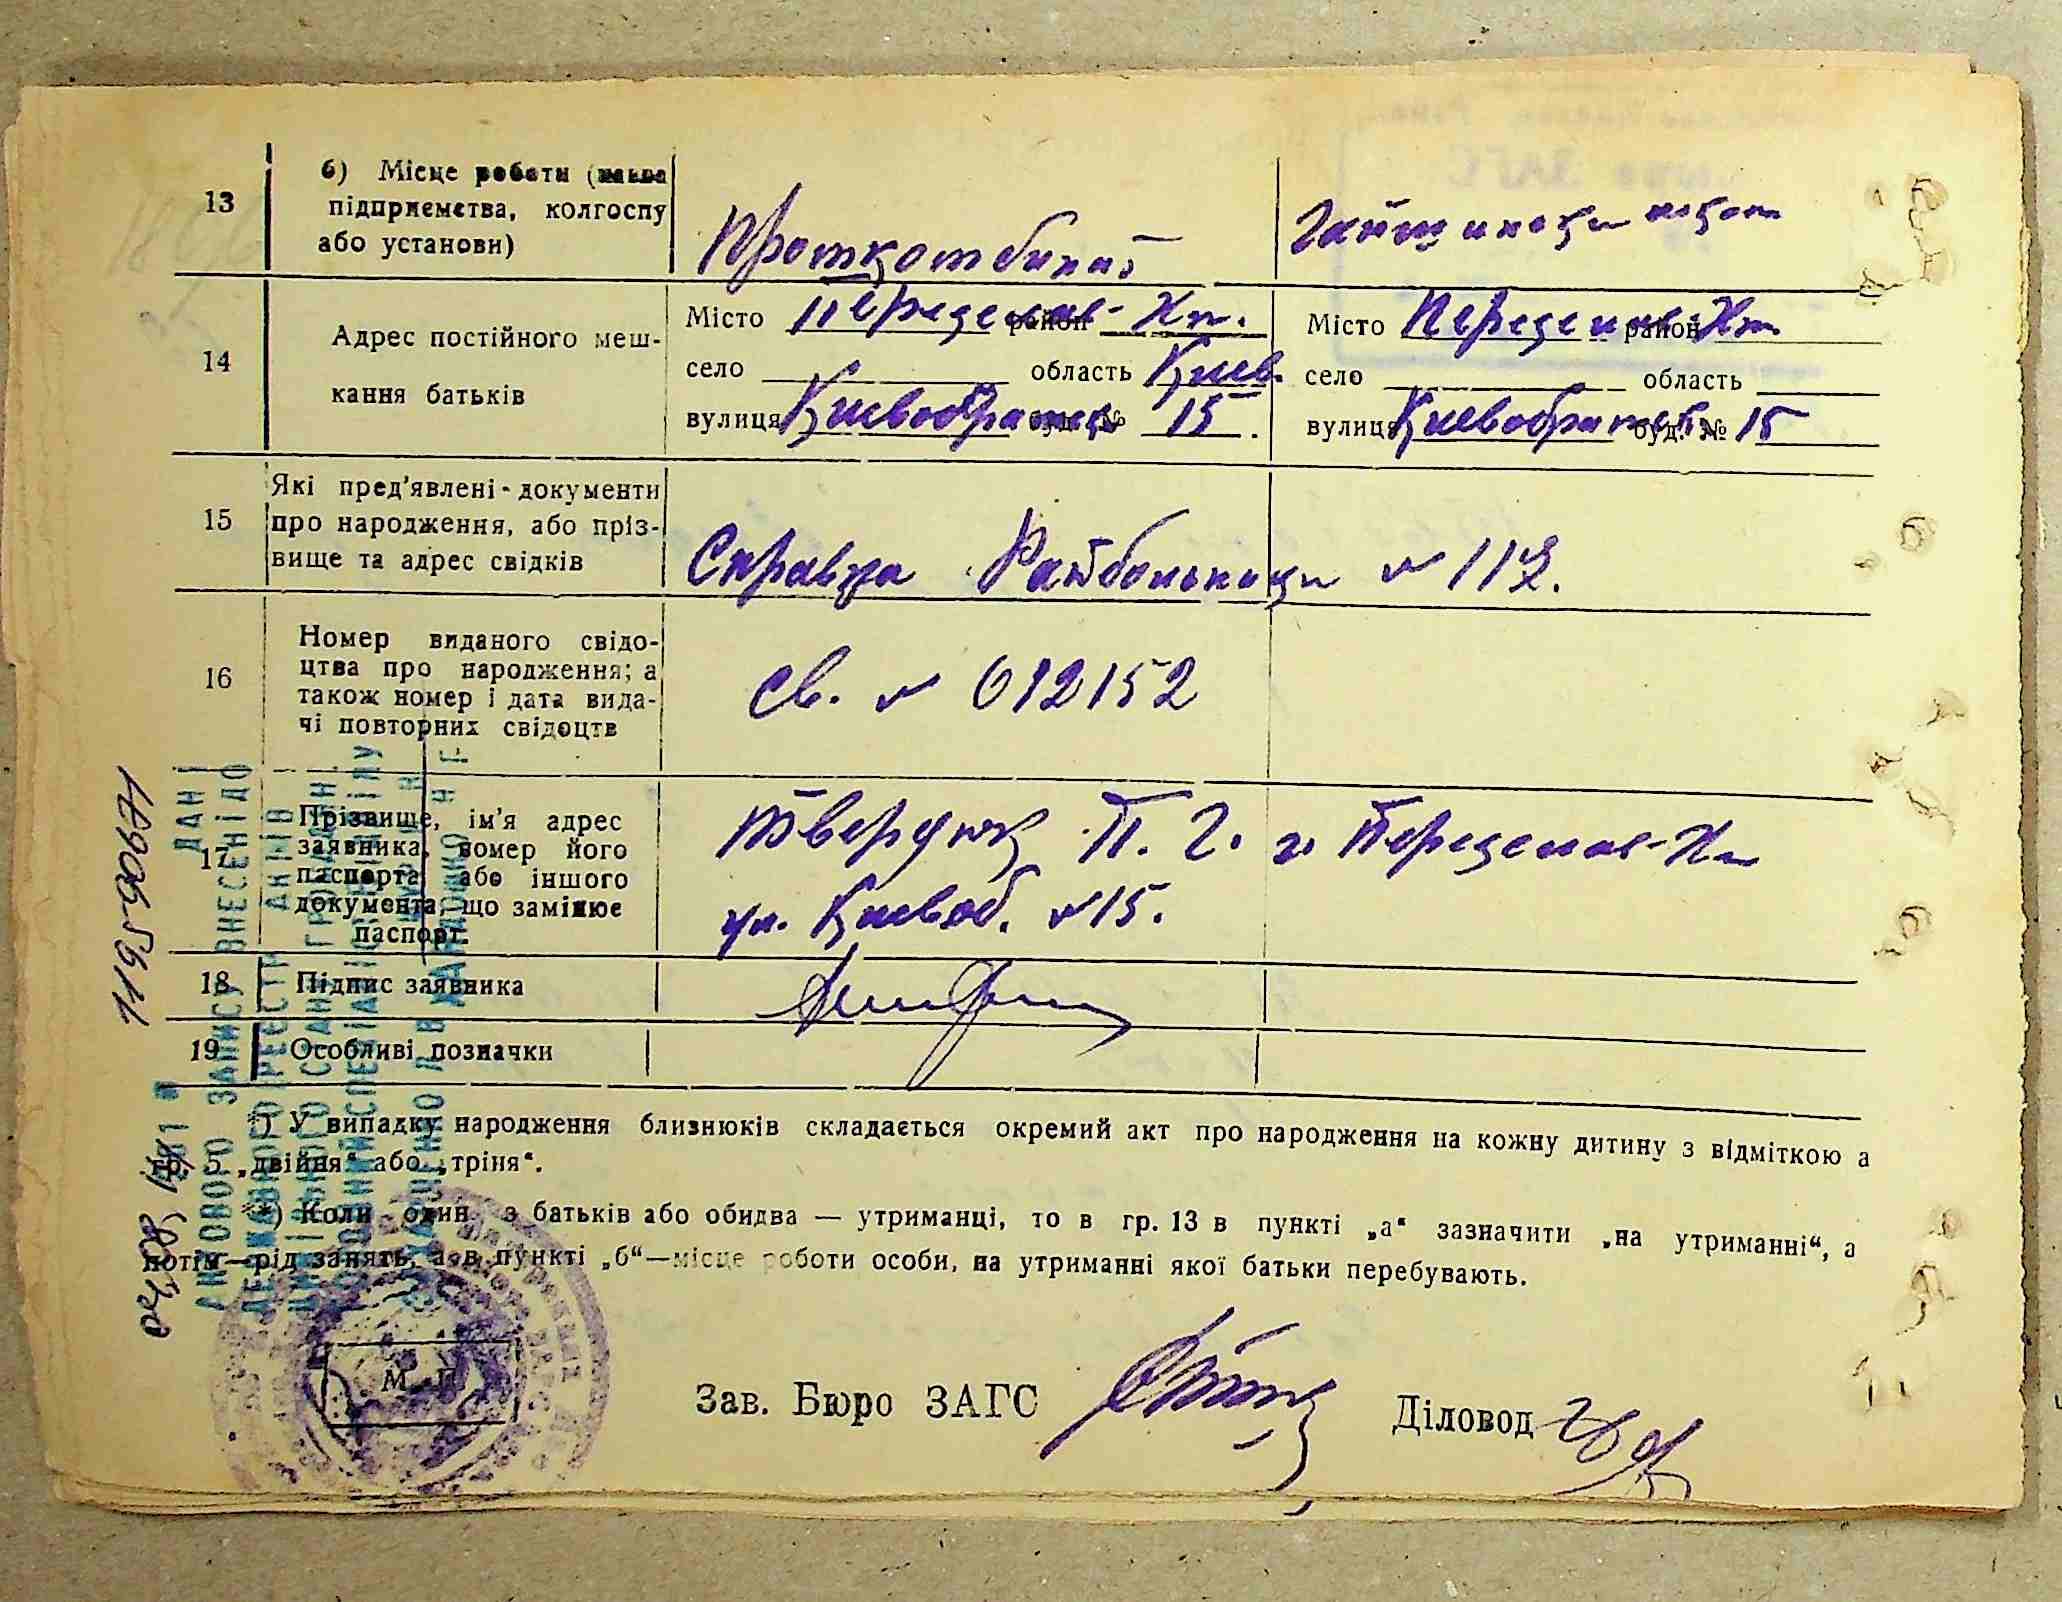 13
б) Місце роботи (назва
підприємства, колгоспу
або установи)
14
Адрес постійного меш-
кання батьків
Місто Переяслав-Хм. район
село область Киев.
вулиця буд. № 15.
Місто Переяслав-Хм. район
село область
вулиця буд. № 15
15
Які пред'явлені документи
про народження, або пріз-
вище та адрес свідків
Справка Райбольницы № 112.
16
Номер виданого свідо-
цтва про народження; а
також номер і дата вида-
чі повторних свідоцтв
Св. № 612152
17
Прізвище, ім'я адрес
заявника, номер його
паспорта або іншого
документа, що замінює
паспорт.
Твердюк П. Г. г. Переяслав-Хм
ул. Киевоб. №15.
18
Підпис заявника
19
Особливі позначки
*) У випадку народження близнюків складається окремий акт про народження на кожну дитину з відміткою а
гр. 5 „двійня“ або „тріня“.
**) Коли один з батьків або обидва — утриманці, то в гр. 13 в пункті „а“ зазначити „на утриманні“, а
потім—рід занять, а в пункті „б“—місце роботи особи, на утриманні якої батьки перебувають.
М. П.
Зав. Бюро ЗАГС
Діловод
ДАНІ
АКТОВОГО ЗАПИСУ ВНЕСЕНІ ДО
ДЕРЖАВНОГО РЕЄСТРУ АКТІВ
ЦИВІЛЬНОГО СТАНУ ГРОМАДЯН